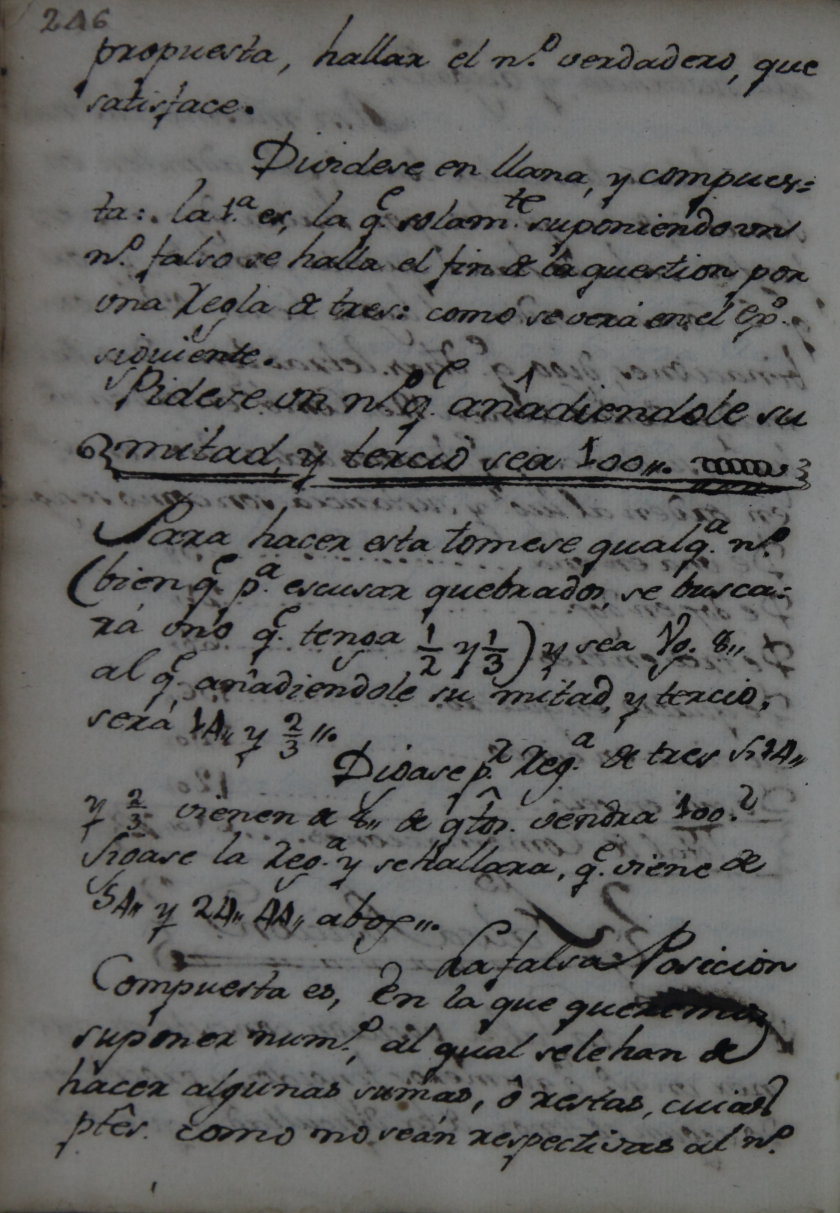 246
propuesta, hallar el n.º verdadero, que
satisface.
Dividese en llana, y compues=
ta: la 1.ª es, la q.e solam.te suponiendo un
n.º falso se halla el fin de la question por
una Regla de tres: como se verá en el exp.º
siguiente.
Pidese un n.º q.e añadiendole su
mitad, y tercio sea 100,,.
Para hacer esta tomese qualq.a n.º
(bien q.e p.a escusar quebrados, se busca=
rá uno q.e tenga 1/2 y 1/3) y sea 8,,
al q.e añadiendole su mitad, y tercio,
será 14,, y 2/3,,.
Digase p.r Reg.a de tres si 14,,
y 2/3 vienen de 8,, de q.tos vendra 100.?
Sigase la Reg.a y se hallara, q.e viene de
54,, y 24,, 44,, abos,,.
La falsa Posicion
Compuesta es, en la que queremos
suponer num.º, al qual se le han de
hacer algunas sumas, ô restas, cuias
ptês. como no seán respectivas al n.º